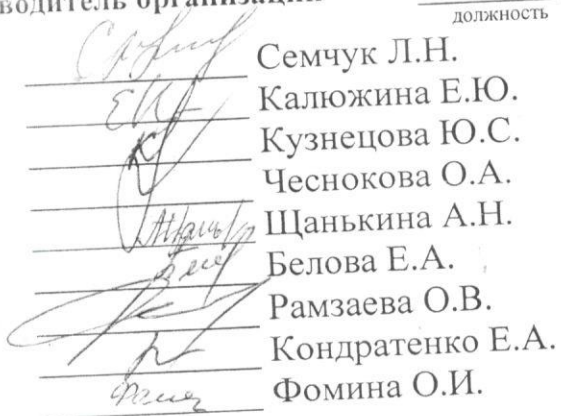 водитель организации
должность
Семчук Л.Н.
Калюжина Е.Ю.
Кузнецова Ю.С.
Чеснокова О.А.
Щанькина А.Н.
Белова Е.А.
Рамзаева О.В.
Кондратенко Е.А.
Фомина О.И.